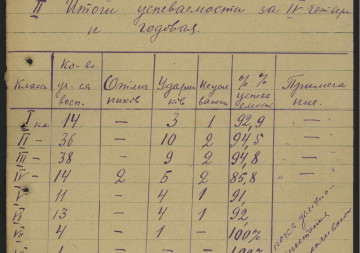 II Итоги успеваемости за IV четверть
и годовая.
Классы Ко-во уч-ся восп. Отлич ников Ударни ков Неуспе вающ % % успев емости Примеча ние.
I кл 14 — 3 1 92,9 — " —
II – 36 — 10 2 94,5 — " —
III – 38 — 9 2 94,8 — " —
IV – 14 2 5 2 85,8 — " —
V 11 — 4 1 91,
VI 13 — 4 1 92,
VII 4 — 1 — 100%
1 — — — 100%
пока условно